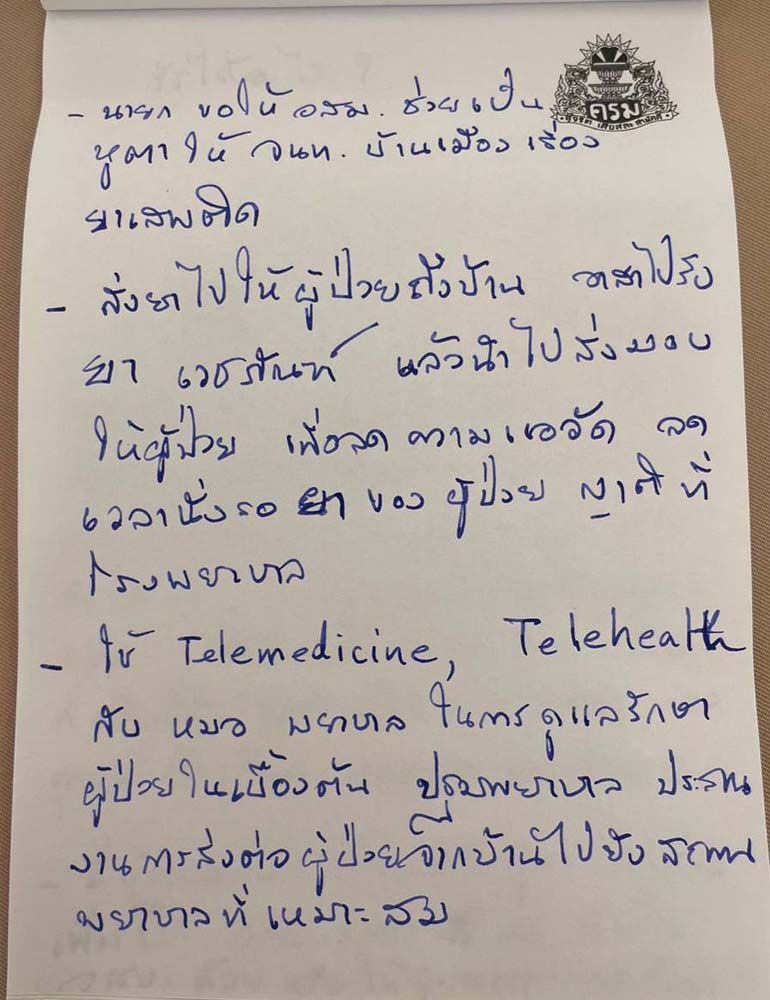 ครม
- นายก ขอให้ อสม. ช่วยเป็น
หูตาให้ จนท. บ้านเมือง เรื่อง
ยาเสพติด
- ส่งยาไปให้ผู้ป่วยถึงบ้าน อาสาไปรับ
ยา เวชภัณฑ์ แล้วนำไปส่งมอบ
ให้ผู้ป่วย เพื่อลดความแออัด ลด
เวลานั่งรอ ยา ของ ผู้ป่วย ญาติ ที่
โรงพยาบาล
- ใช้ Telemedicine, Telehealth
กับ หมอ พยาบาล ในการดูแลรักษา
ผู้ป่วยในเบื้องต้น ปฐมพยาบาล ประสาน
งานการส่งต่อผู้ป่วยจากบ้านไปยัง สถาน
พยาบาลที่ เหมาะสม